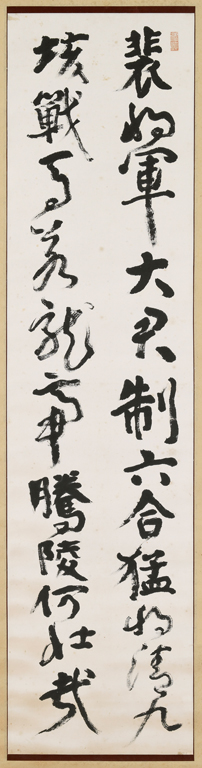 裴将軍大君制六合猛将清九
垓戰馬若龍虎騰陵何壯哉